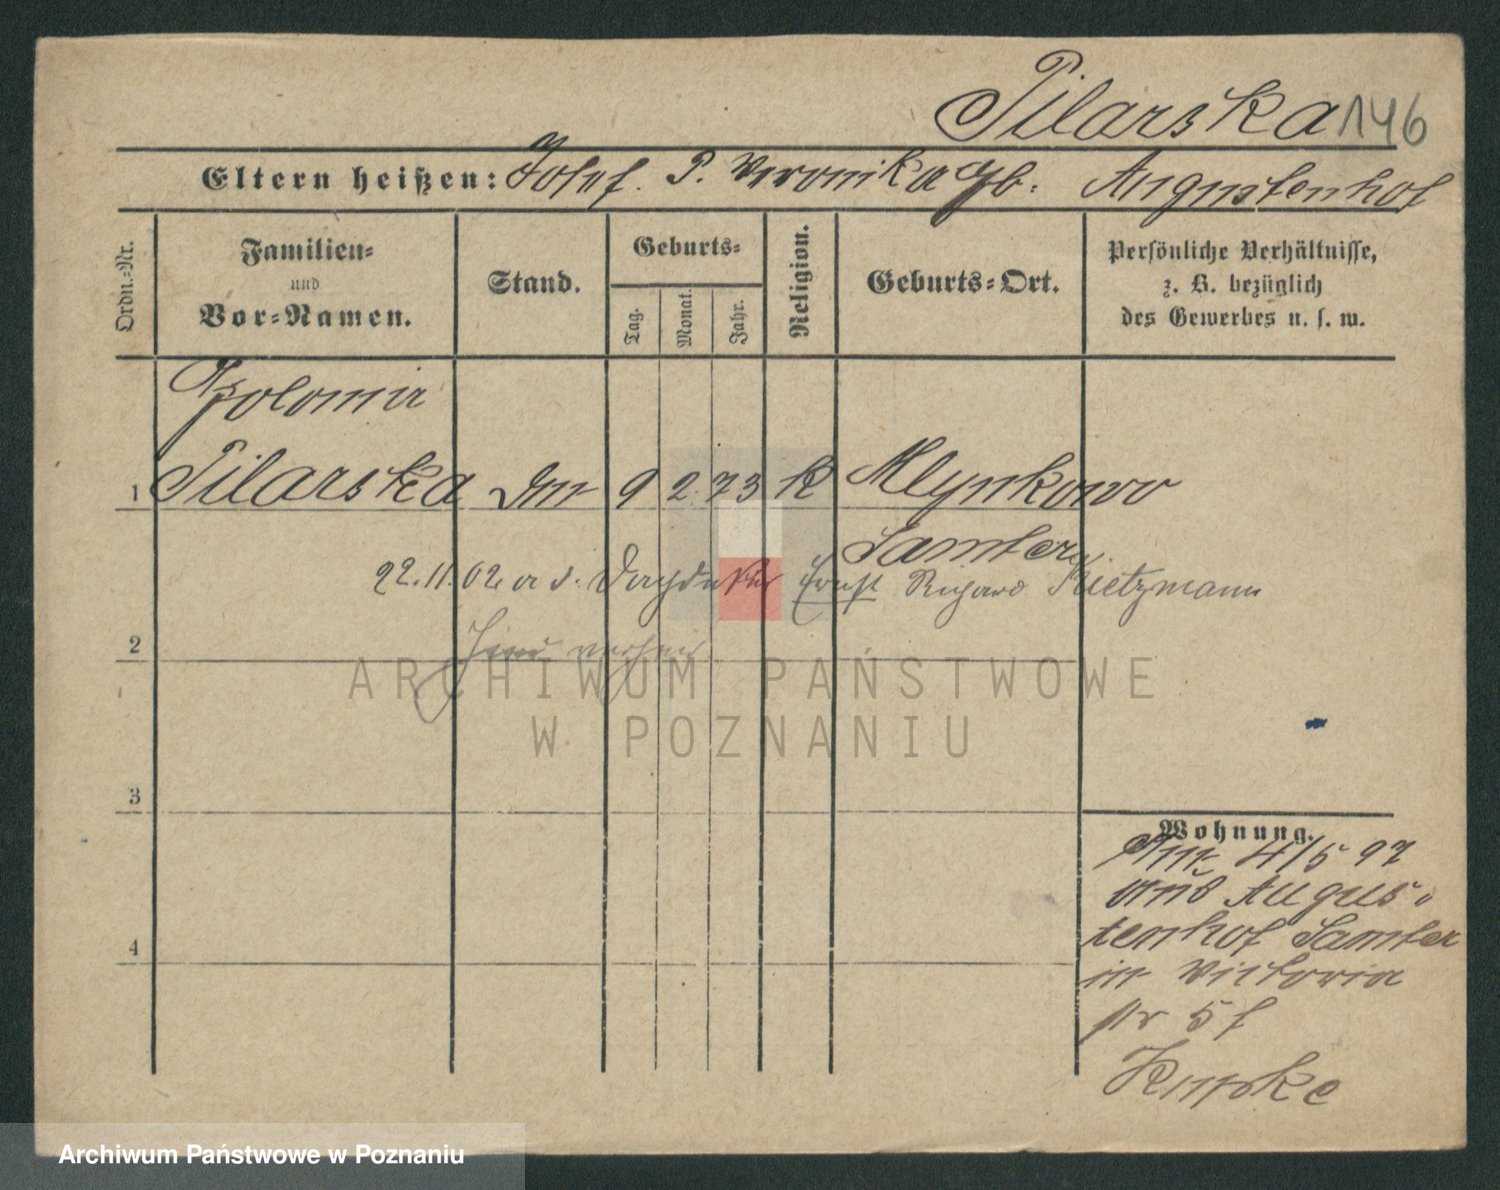 Pilarska 146
Eltern heißen: Josef P. Veronika gb. Augustenhof
Ordn.-Nr.
Familien-
und
Vor-Namen.
Stand.
Geburts-
Tag.
Monat.
Jahr.
Religion.
Geburts-Ort.
Persönliche Verhältnisse,
z. B. bezüglich
des Gewerbes u. s. w.
1 Pilarska 9 2. 73 K Mlynkowo
Samter
22.11.02 a. d. Ernst Richard Rietzmann
2
3
4
Wohnung.
4/5 97
aus Augus-
tenhof Samter
in Victoria
str 5 f
ARCHIWUM PAŃSTWOWE
W POZNANIU
Archiwum Państwowe w Poznaniu